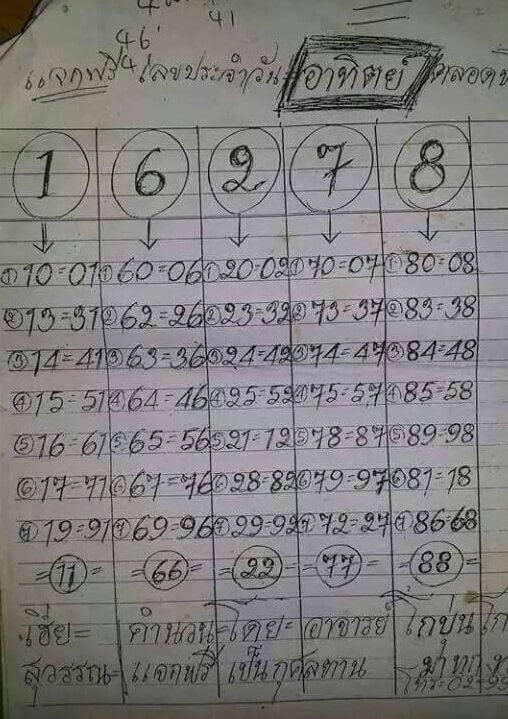 41
46
แจกฟรี เลขประจำวัน อาทิตย์ ตลอด
1 6 2 7 8
①10=01 ①60=06 ①20=02 ①70=07 ①80=08
②13=31 ②62=26 ②23=32 ②73=37 ②83=38
③14=41 ③63=36 ③24=42 ③74=47 ③84=48
④15=51 ④64=46 ④25=52 ④75=57 ④85=58
⑤16=61 ⑤65=56 ⑤21=12 ⑤78=87 ⑤89=98
⑥17=71 ⑥67=76 ⑥28=82 ⑥79=97 ⑥81=18
⑦19=91 ⑦69=96 ⑦29=92 ⑦72=27 ⑦86=68
=11= =66= =22= =77= =88=
คำนวน=โดย=อาจารย์
สุวรรณ= แจกฟรี เป็นกุศลทาน